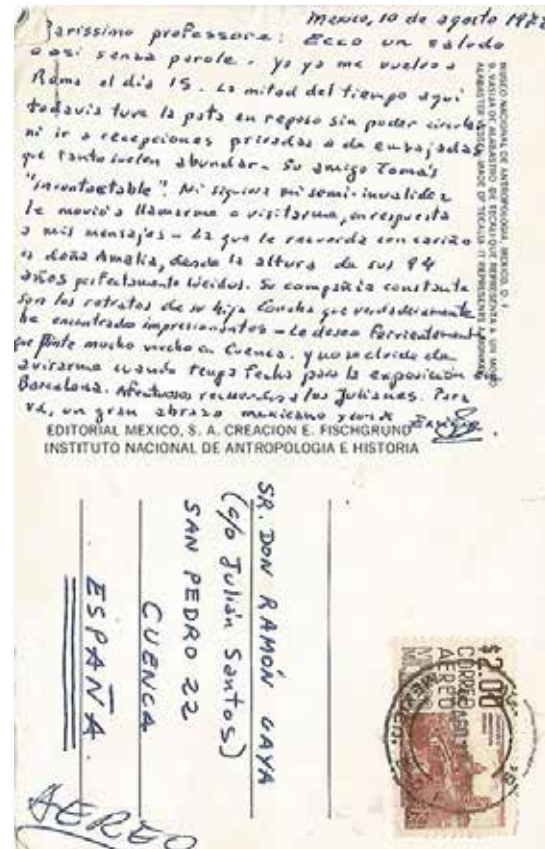 Mexico, 10 de agosto 197
Carissimo professore: Ecco un saludo
casi senza parole. Yo ya me vuelvo a
Roma el día 15. La mitad del tiempo aquí
todavía tuve la pata en reposo sin poder circular
ni ir a recepciones privadas o de embajadas
que tanto suelen abundar. Su amigo Tomás
"incontactable". Ni siquiera mi semi-invalidez
le movió a llamarme o visitarme, en respuesta
a mil mensajes. La que le recuerda con cariño
es doña Amalia, desde la altura de sus 94
años perfectamente lúcidos. Su compañía constante
son los retratos de su hija Concha que verdaderamente
he encontrado impresionantes. Le deseo fervientemente
que pinte mucho mucho en Cuenca. y no se olvide de
avisarme cuando tenga fecha para la exposición en
Barcelona. Afectuosos recuerdos a los Julianes. Para
Vd, un gran abrazo mexicano
EDITORIAL MEXICO, S. A. CREACION E. FISCHGRUND
INSTITUTO NACIONAL DE ANTROPOLOGIA E HISTORIA
MUSEO NACIONAL DE ANTROPOLOGIA. MEXICO, D. F.
VASIJA DE ALABASTRO DE TECALI QUE REPRESENTA A UN MONO
ALABASTER VESSEL MADE OF TECALLI. IT REPRESENTS A MONKEY
SR. DON RAMÓN GAYA
(c/o Julián Santos)
SAN PEDRO 22
CUENCA
ESPAÑA
AEREO
$2.00
CORREO
AEREO